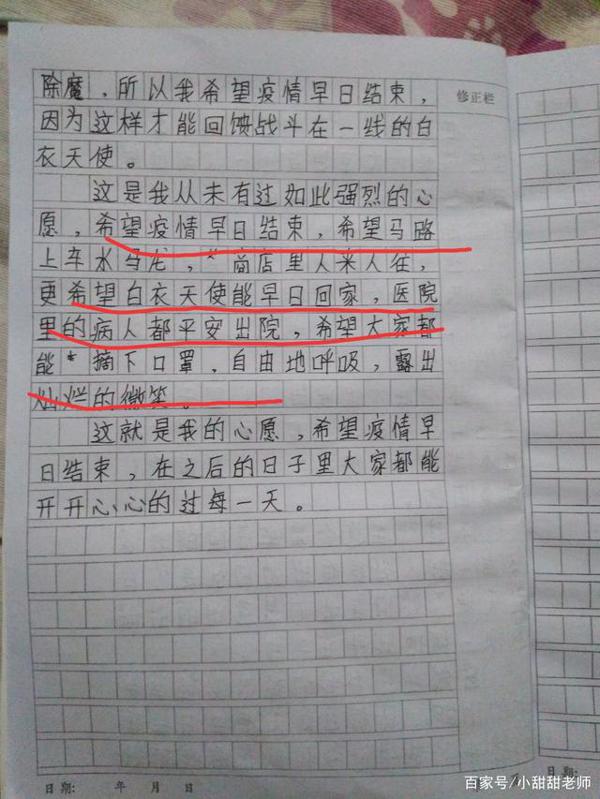 除魔，所以我希望疫情早日结束，
修正栏
因为这样才能回馈战斗在一线的白
衣天使。
这是我从未有过如此强烈的心
愿，希望疫情早日结束，希望马路
上车水马龙，商店里人来人往，
更希望白衣天使能早日回家，医院
里的病人都平安出院，希望大家都
能摘下口罩，自由地呼吸，露出
灿烂的微笑。
这就是我的心愿，希望疫情早
日结束，在之后的日子里大家都能
开开心心的过每一天。
日期: 年 月 日
日期:
百家号/小甜甜老师